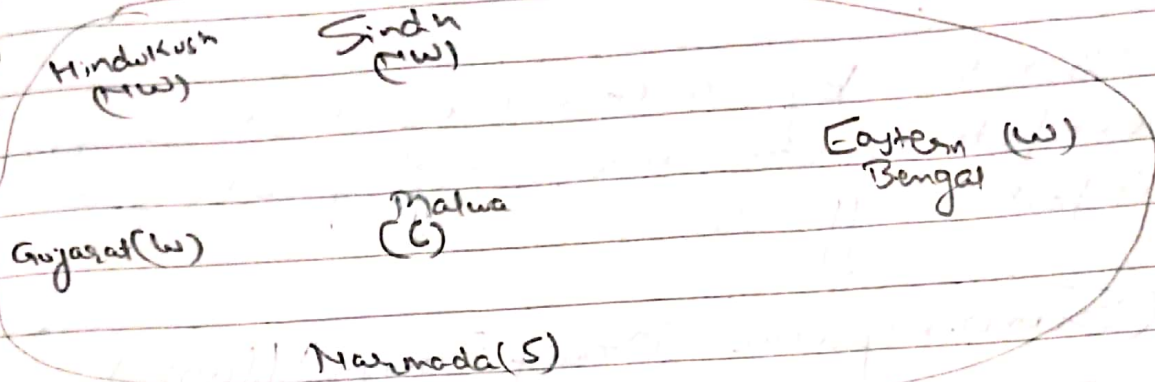 Hindukush
(NW)
Sindh
(NW)
Eastern (W)
Bengal
Malwa
(C)
Gujarat (W)
Narmada (S)